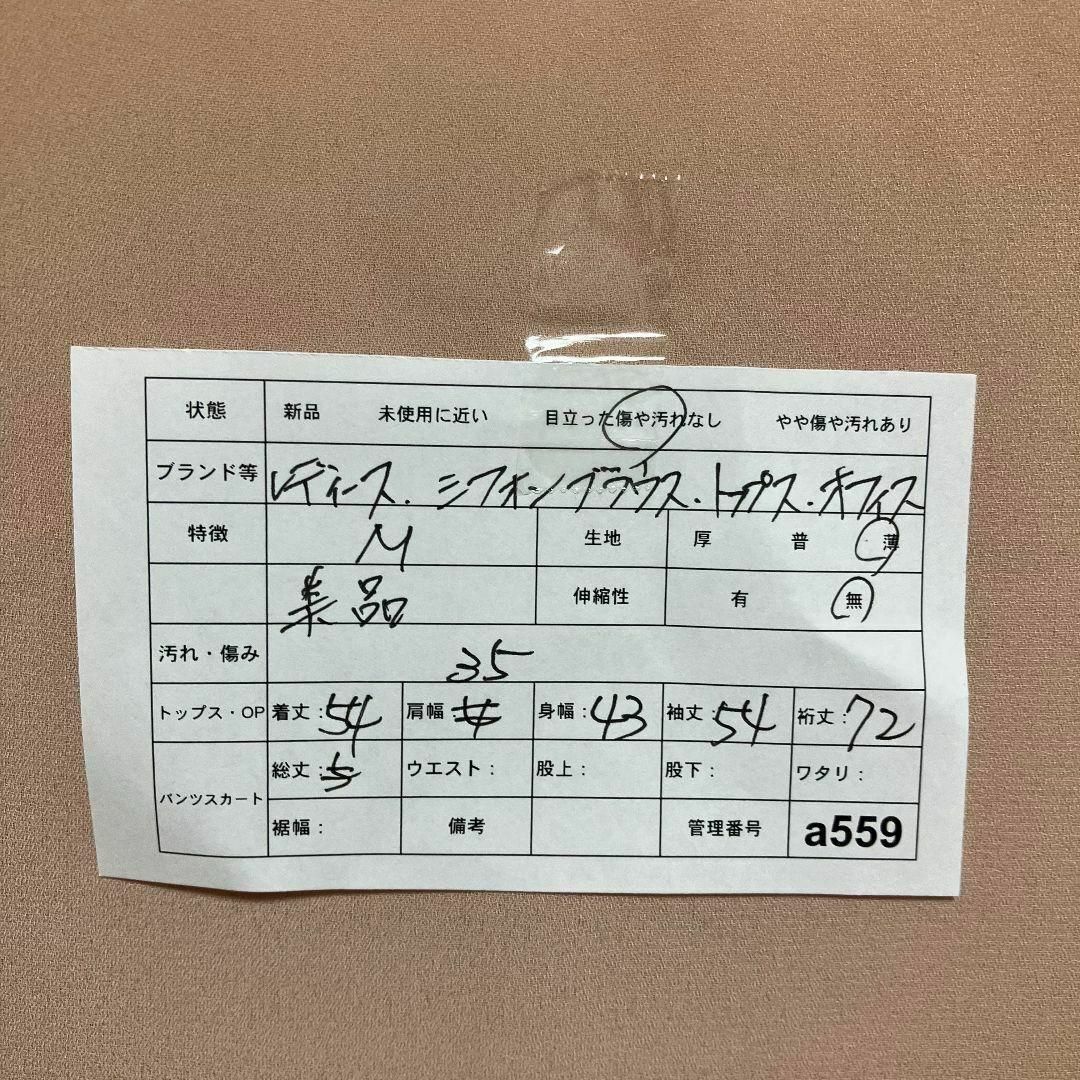 状態 新品 未使用に近い 目立った傷や汚れなし やや傷や汚れあり
ブランド等 レディース.シフォンブラウス.トップス.オフィス
特徴 M 生地 厚 普 薄
美品 伸縮性 有 無
汚れ・傷み 35
トップス・OP 着丈:54 肩幅 身幅:43 袖丈:54 裄丈:72
パンツスカート 総丈: ウエスト: 股上: 股下: ワタリ:
裾幅: 備考 管理番号 a559